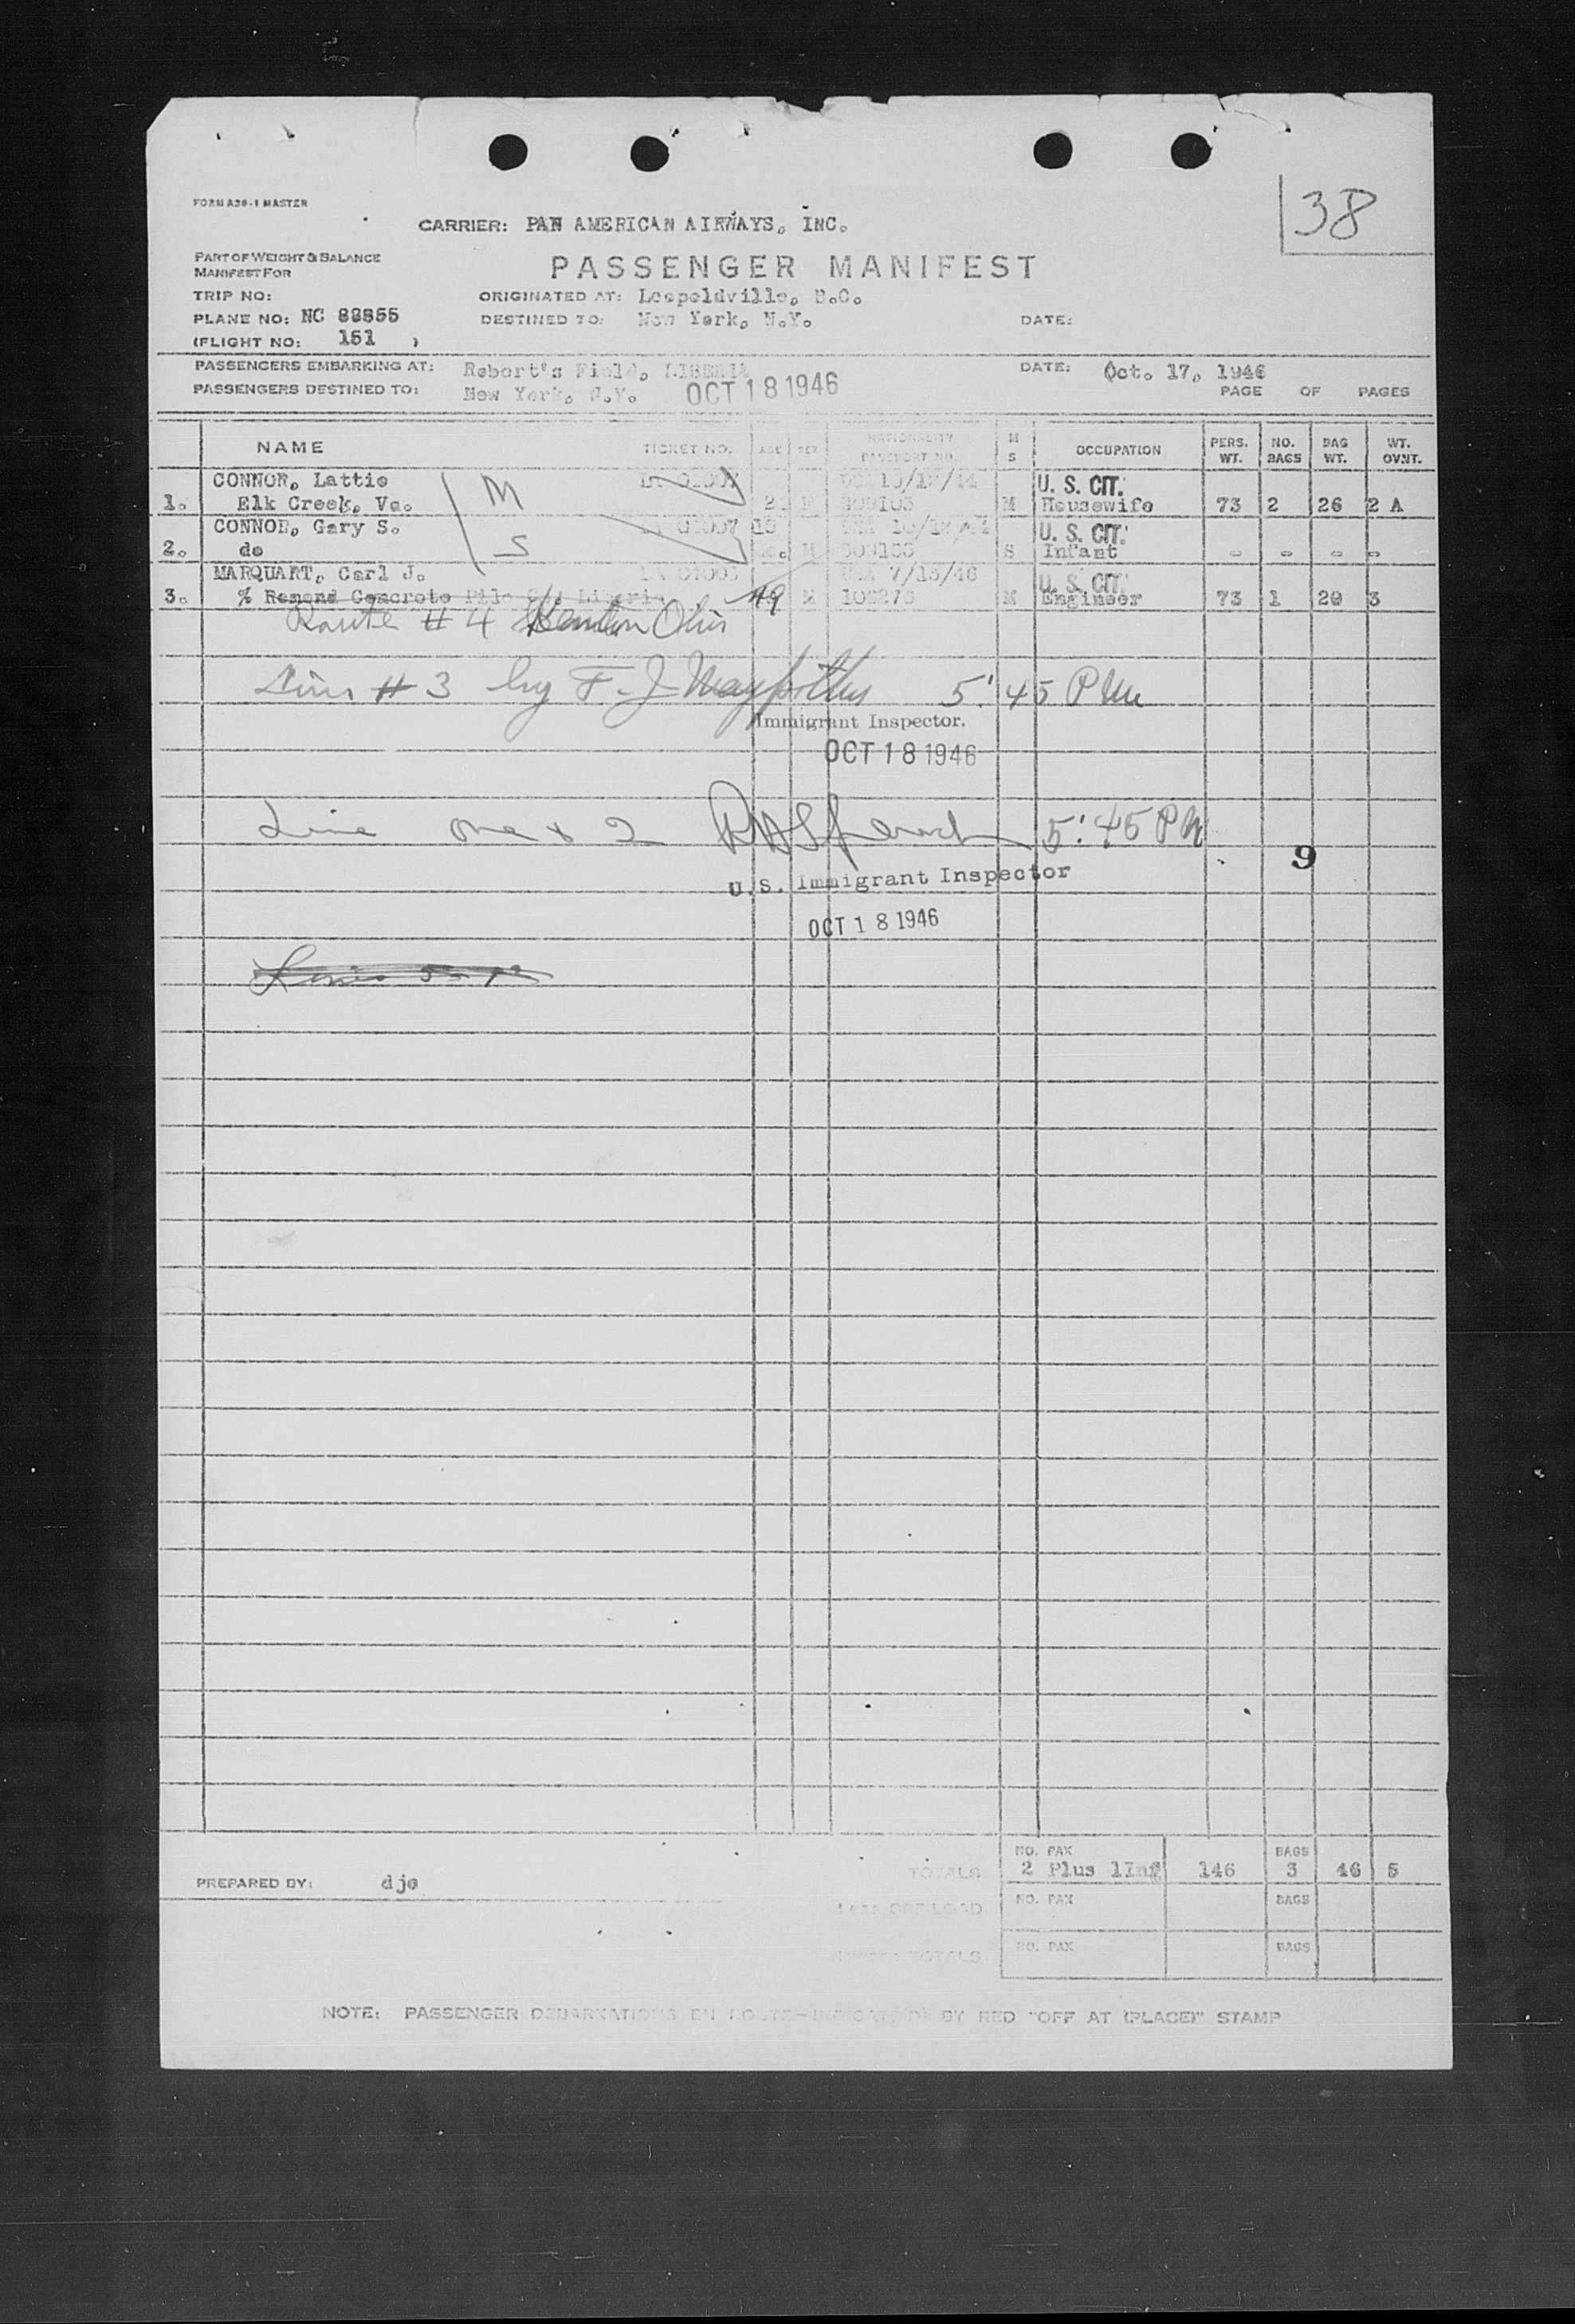 38
FORM A28-1 MASTER
CARRIER: PAN AMERICAN AIRWAYS, INC.
PART OF WEIGHT & BALANCE
MANIFEST FOR
PASSENGER MANIFEST
TRIP NO:
ORIGINATED AT: Leopoldville, B.C.
PLANE NO: NC 88855
DESTINED TO: New York, N.Y.
DATE:
(FLIGHT NO: 151 )
PASSENGERS EMBARKING AT: Robert's Field, LIBERIA
DATE: Oct. 17, 1946
PASSENGERS DESTINED TO: New York, N.Y. OCT 18 1946
PAGE OF PAGES
NAME TICKET NO. AGE SEX NATIONALITY PASSPORT NO. M S OCCUPATION PERS. WT. NO. BAGS BAG WT. WT. OVNT.
CONNOR, Lattie U. S. CIT.
1. Elk Creek, Va. M M Housewife 73 2 26 2 A
CONNOR, Gary S. U. S. CIT.
2. do S S Infant - - - -
MARQUART, Carl J. USA 7/15/46 U. S. CIT.
3. % Remond Concrete Pile Liberia 49 M 108276 M Engineer 73 1 20 3
Route # 4 Kenton Ohio
# 3 by F. J. 5:45 PM
Immigrant Inspector.
OCT 18 1946
Line one & 2 5:45 PM
9
U.S. Immigrant Inspector
OCT 18 1946
TOTALS NO. PAX 2 Plus 1Inf 146 BAGS 3 46 5
PREPARED BY: djo
LESS OFF-LOAD NO. PAX BAGS
TOTALS NO. PAX BAGS
NOTE: PASSENGER DEBARKATIONS EN ROUTE-INDICATED BY RED "OFF AT (PLACE)" STAMP